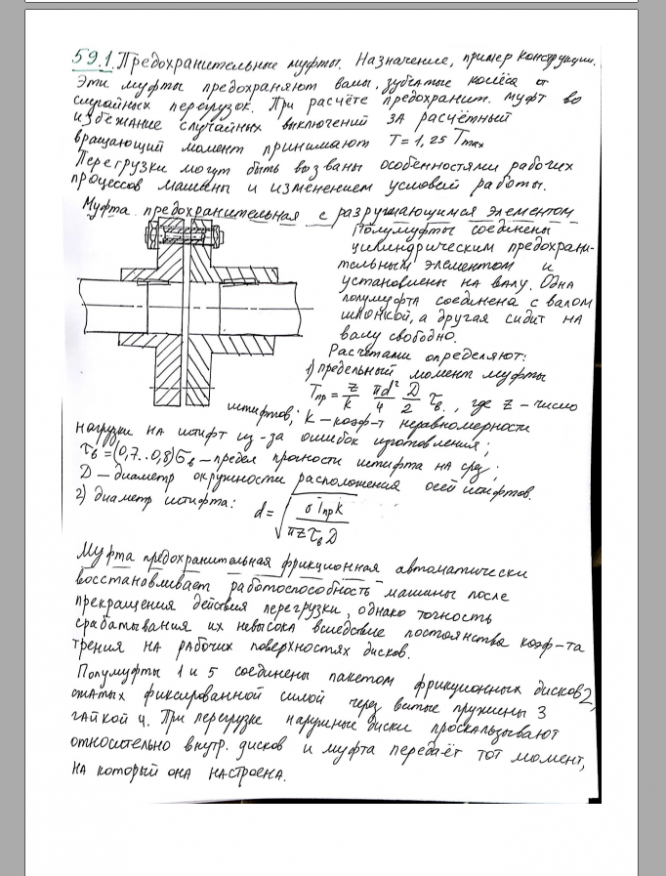 59.1. Предохранительные муфты. Назначение, пример конструкции.
Эти муфты предохраняют валы, зубчатые колёса от
случайных перегрузок. При расчёте предохранит. муфт во
избежание случайных выключений за расчётный
вращающий момент принимают T = 1,25 Tmax
Перегрузки могут быть вызваны особенностями рабочих
процессов машины и изменением условий работы.
Муфта предохранительная с разрушающимся элементом
Полумуфты соединены
цилиндрическим предохрани-
тельным элементом и
установлены на валу. Одна
полумуфта соединена с валом
шпонкой, а другая сидит на
валу свободно.
Расчётами определяют:
1) предельный момент муфты
Tпр = z/k πd²/4 D/2 τв., где z – число
штифтов; k – коэф-т неравномерности
нагрузки на штифт из-за ошибок изготовления;
τв = (0,7..0,8)σв – предел прочности штифта на срез;
D – диаметр окружности расположения осей штифтов.
2) диаметр штифта: d = √(8 Tпр k / πzτвD)
Муфта предохранительная фрикционная автоматически
восстанавливает работоспособность машины после
прекращения действия перегрузки, однако точность
срабатывания их невысока вследствие постоянства коэф-та
трения на рабочих поверхностях дисков.
Полумуфты 1 и 5 соединены пакетом фрикционных дисков 2,
сжатых фиксированной силой через витые пружины 3
гайкой 4. При перегрузке наружные диски проскальзывают
относительно внутр. дисков и муфта передаёт тот момент,
на который она настроена.